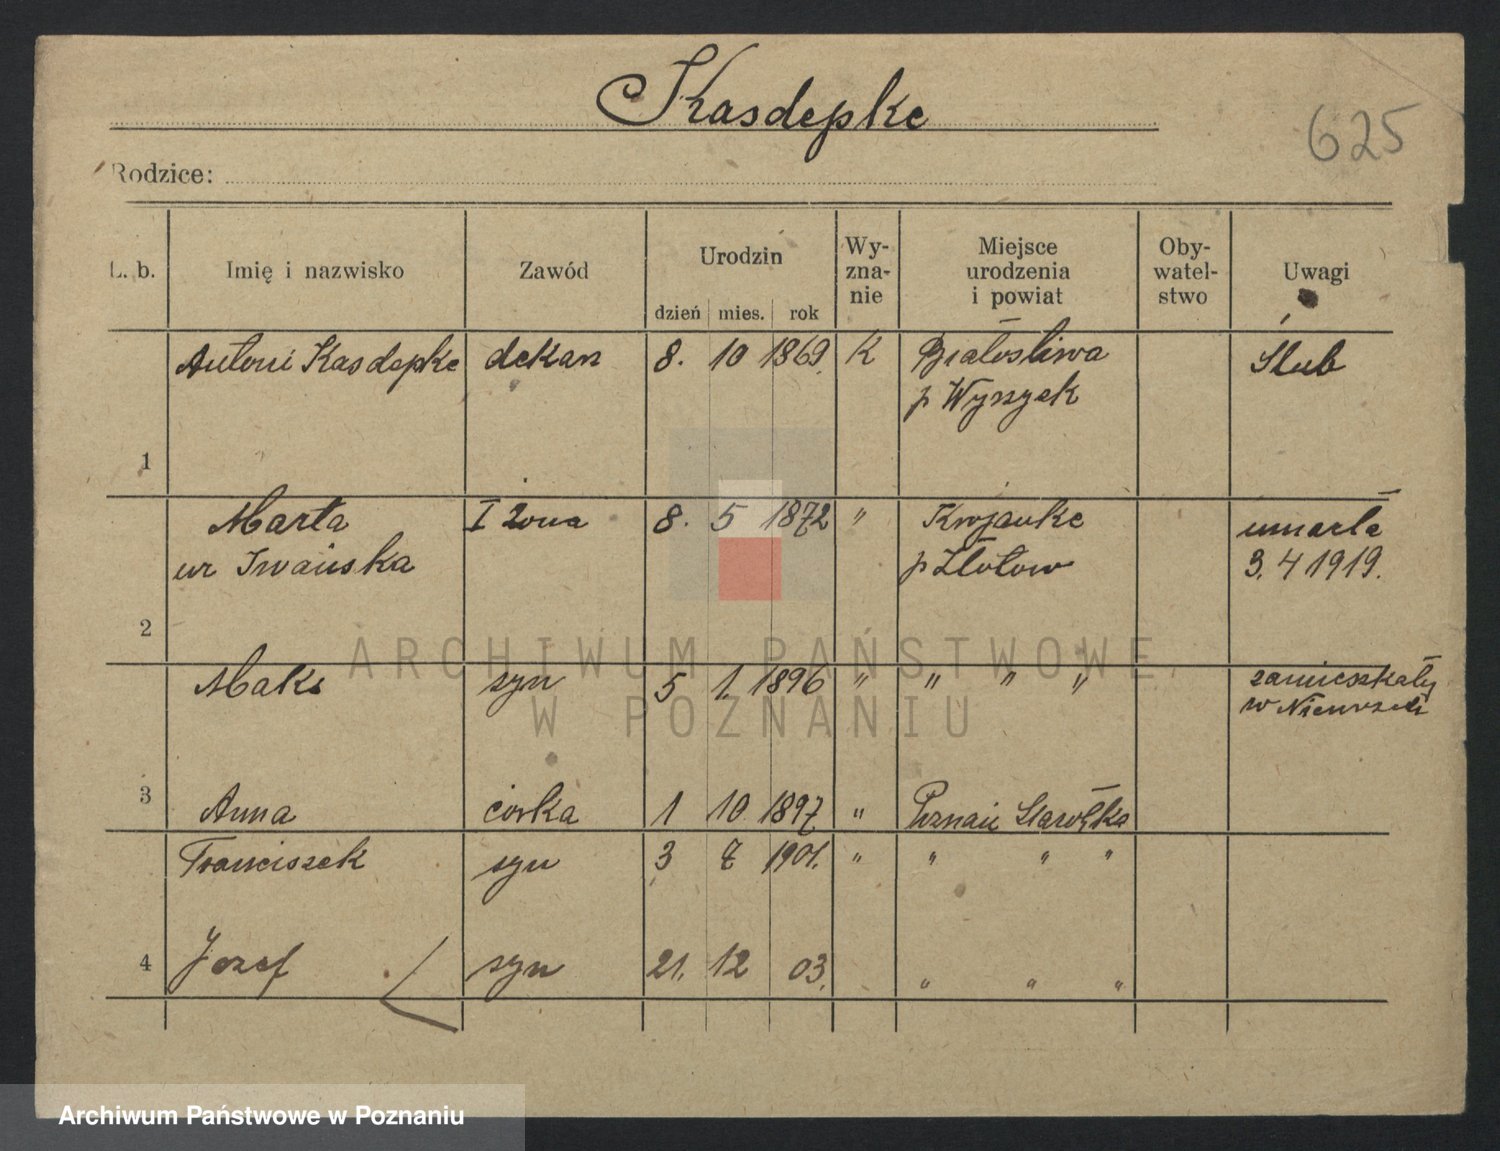 Kasdepke
625
Rodzice:
L. b. Imię i nazwisko Zawód Urodzin dzień mies. rok Wy-zna-nie Miejsce urodzenia i powiat Oby-watel-stwo Uwagi
Antoni Kasdepke dekarz 8. 10 1869. K Białośliwa Ślub
p Wyrzysk
1
Marta I żona 8. 5 1872 " Krojanke umarła
ur Iwańska p Złotow 3. 4 1919.
2
Maks syn 5 1. 1896 " " " " zamieszkały
w Niemczech
3
Anna córka 1 10 1897 " Poznań Starołęka
Franciszek syn 3 8 1901. " " " "
4
Jozef syn 21. 12 03. " " "
ARCHIWUM PAŃSTWOWE
W POZNANIU
Archiwum Państwowe w Poznaniu